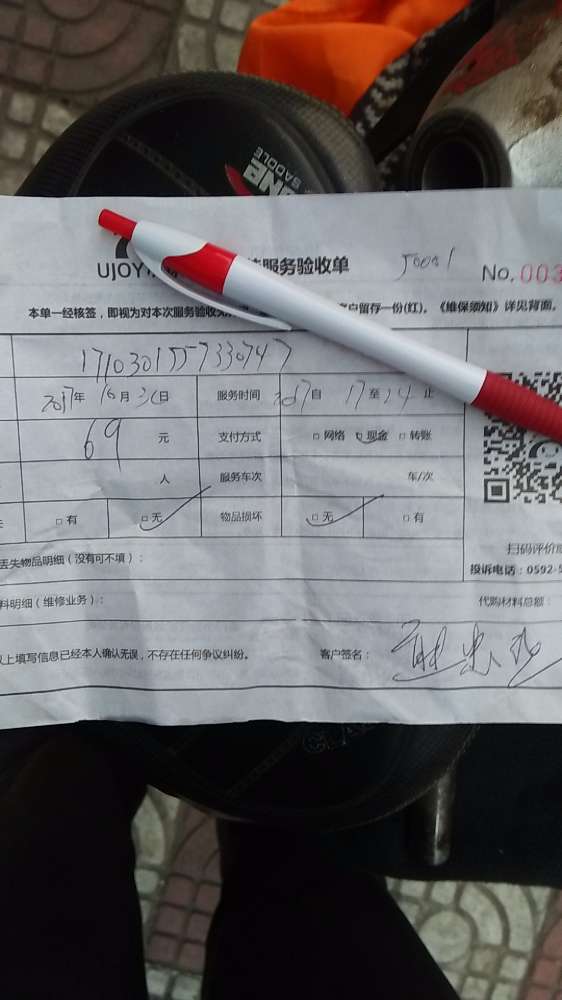 SADDLE
UJOY 服务验收单 50001 No.003
本单一经核签，即视为对本次服务验收 客户留存一份(红)。《维保须知》详见背面。
1710301557330747
2017年 10月 30日 服务时间 自 17 至 24 止
69 元 支付方式 □网络 □现金 □转账
人 服务车次 车/次
□有 □无 物品损坏 □无 □有
丢失物品明细（没有可不填）： 扫码评价
投诉电话：0592-5
料明细（维修业务）： 代购材料总额：
以上填写信息已经本人确认无误，不存在任何争议纠纷。 客户签名：